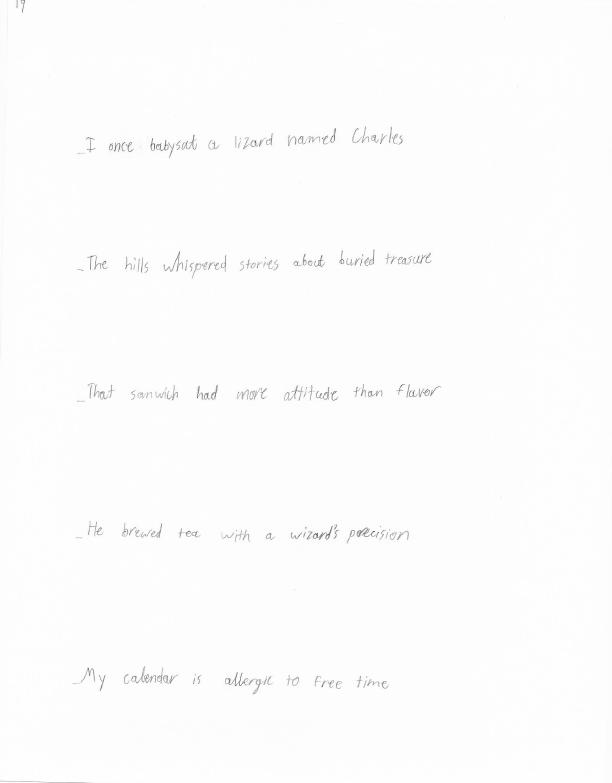 19
_I once babysat a lizard named Charles
_The hills whispered stories about buried treasure
_That sanwich had more attitude than flavor
_He brewed tea with a wizard's precision
_My calendar is allergic to free time